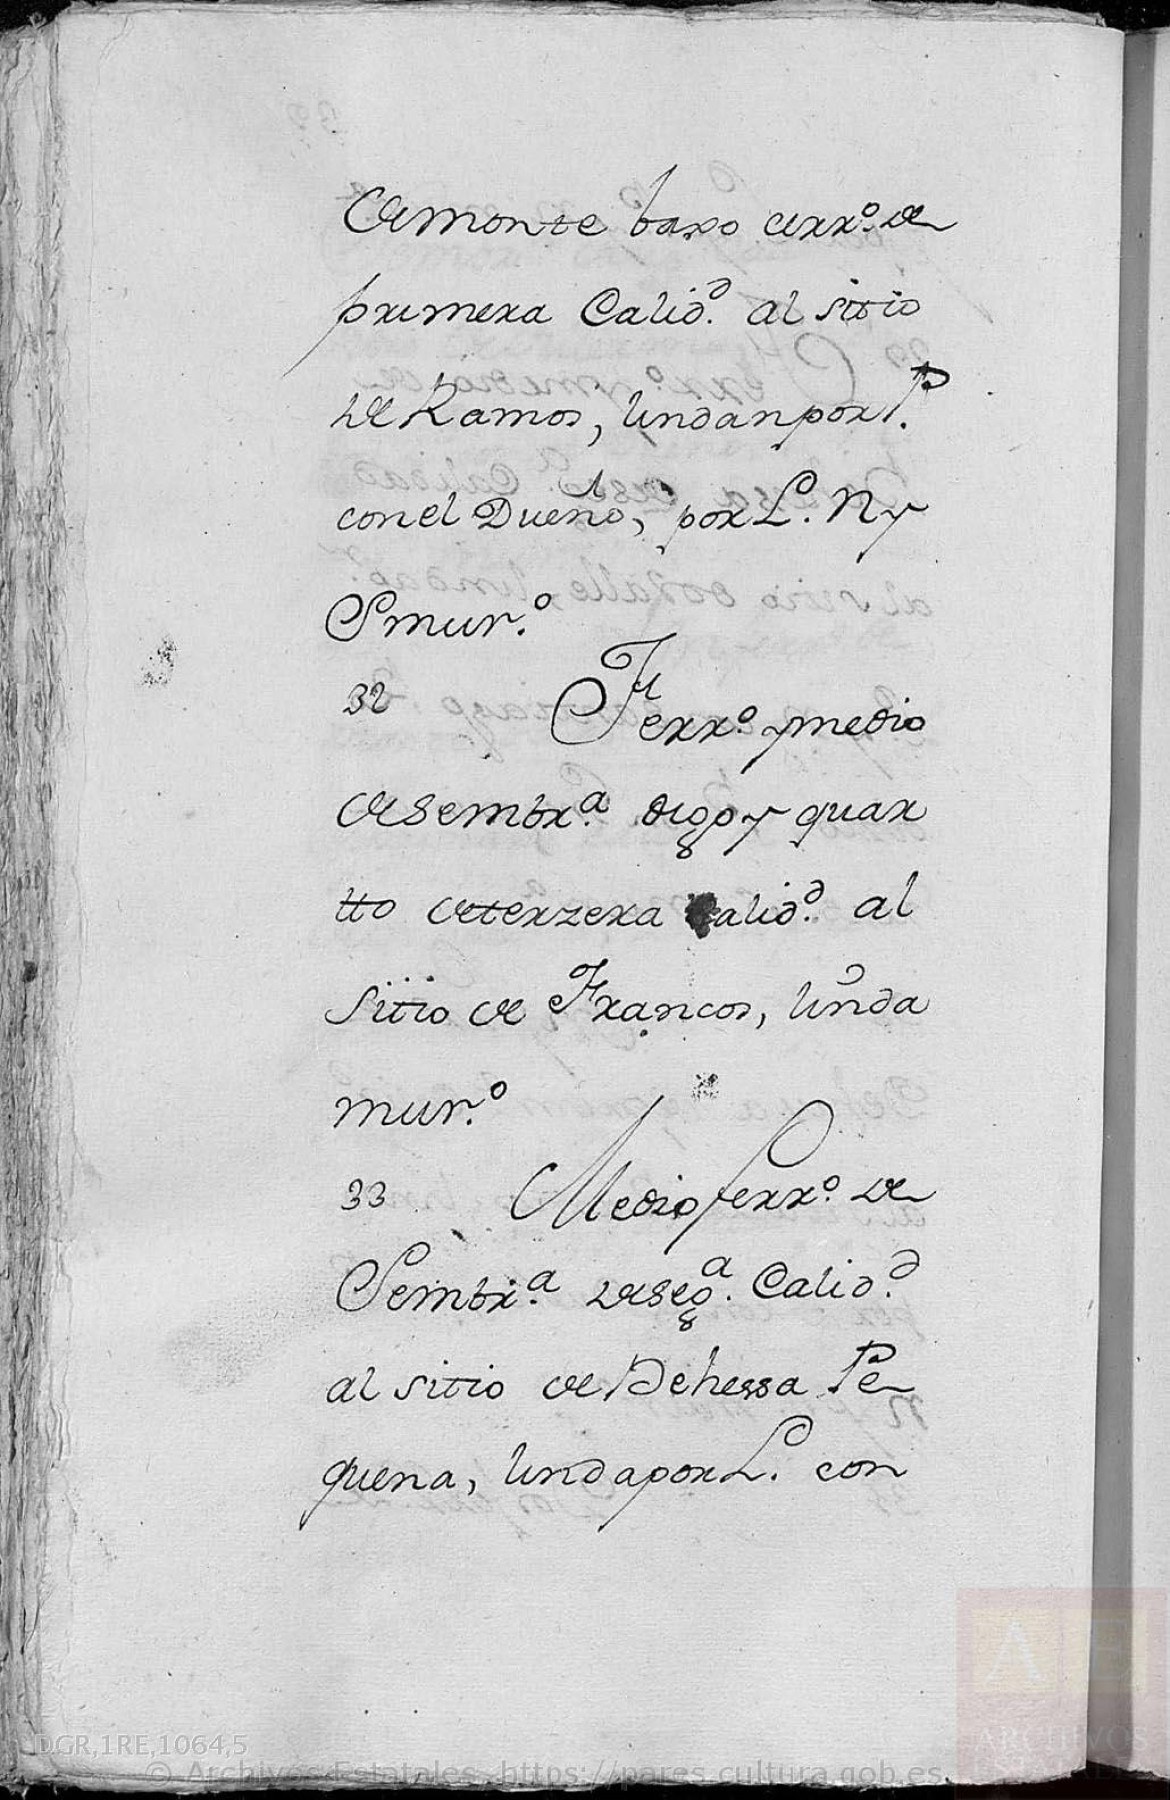 de monte baxo cerr.º de
primera Calid.d al sitio
de Ramos, lindan por P.
con el Dueño, por L. N y
S mur.º
32 Ferr.º y medio
de sembr.a digo y quar
tto de terzera Calid.d al
sitio de Francos, linda
mur.º
33 Medio ferr.º de
Sembr.a de seg.a Calid.d
al sitio de Dehessa Pe
quena, linda por L. con
DGR,1RE,1064,5
© Archivos Estatales, https://pares.cultura.gob.es
AE
ARCHIVOS
ESTATALES